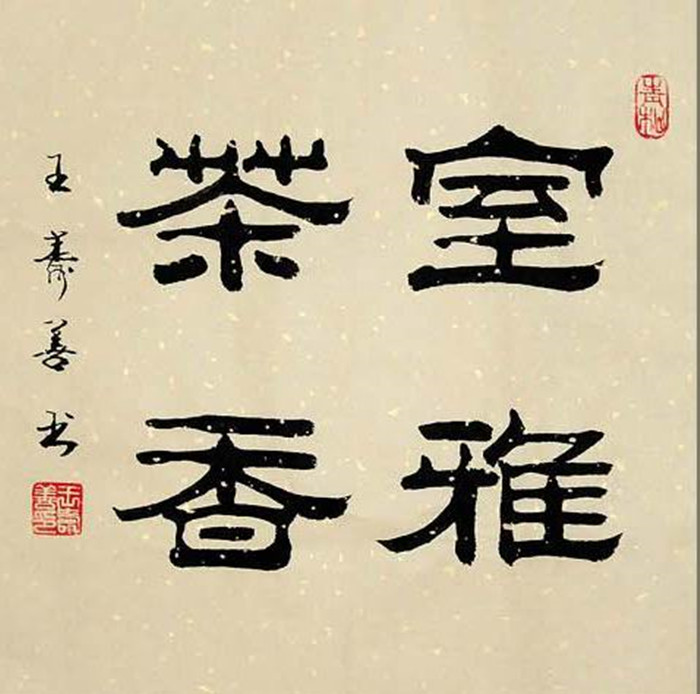 室雅
茶香
王寿善书